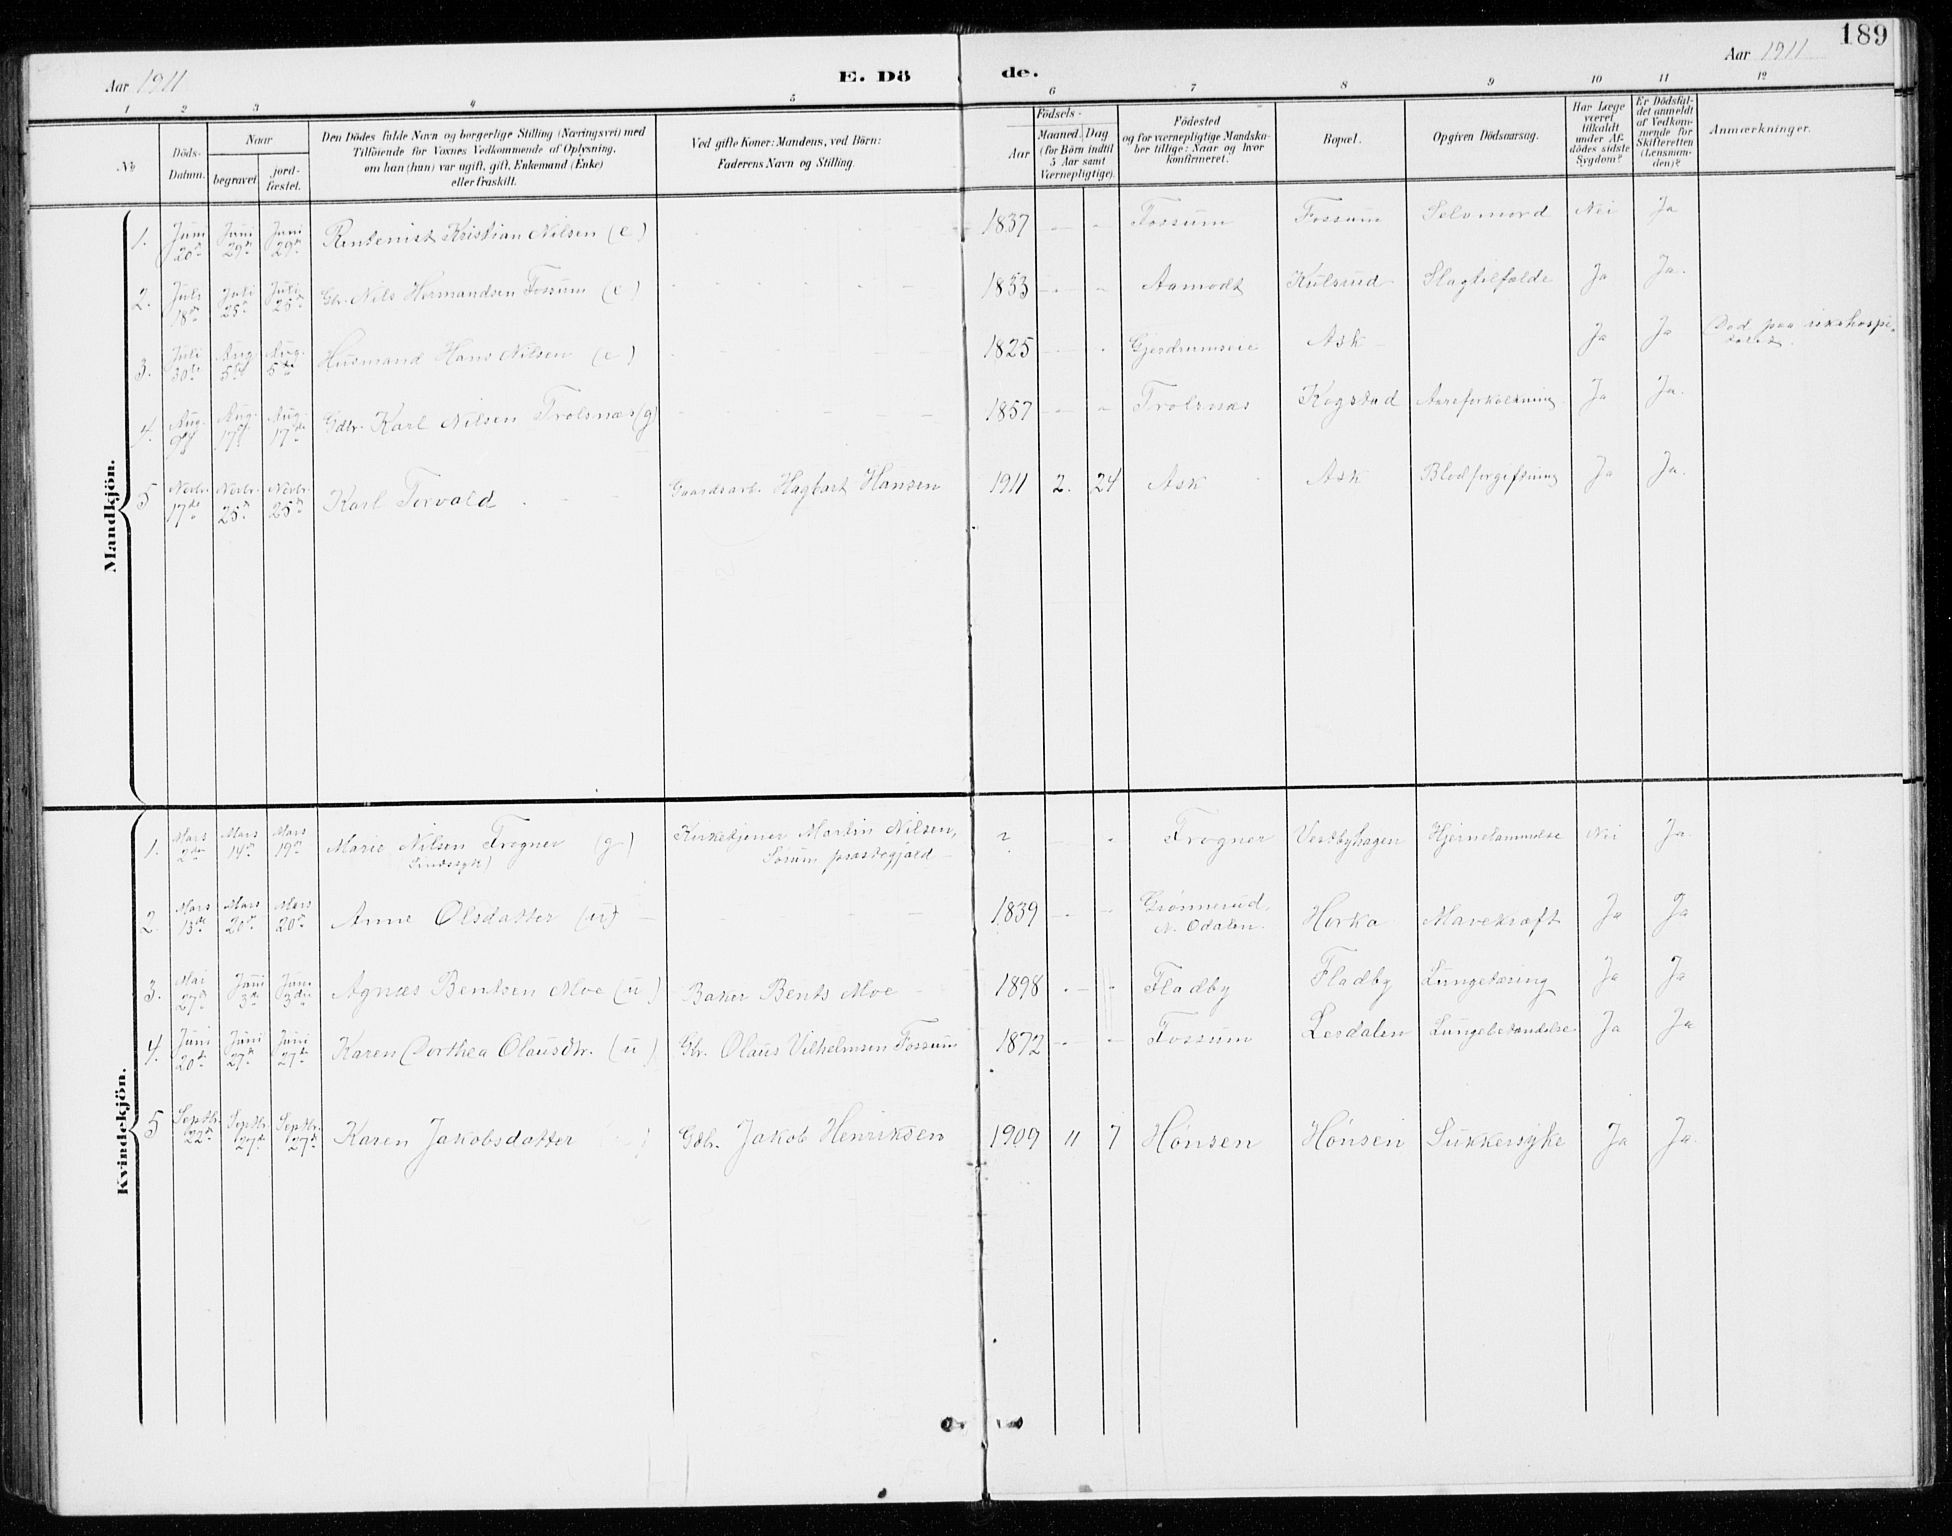 189
Aar 1911 E. Dö de. Aar 1911
1 2 3 4 5 6 7 8 9 10 11 12
No
Döds-Datum.
Naar
begravet
jord-fæstet.
Den Dödes fulde Navn og borgerlige Stilling (Næringsvei) med
Tilföiende for Voxnes Vedkommende af Oplysning,
om han (hun) var ugift, gift, Enkemand (Enke)
eller fraskilt.
Ved gifte Koner: Mandens, ved Börn:
Faderens Navn og Stilling.
Födsels-
Aar
Maaned. Dag
(for Börn indtil
5 Aar samt
Værnepligtige).
Födested
og for værnepligtige Mandska-
ber tillige: Naar og hvor
konfirmeret.
Bopæl.
Opgiven Dödsaarsag.
Har Læge
været
tilkaldt
under Af-
dödes sidste
Sygdom?
Er Dödsfal-
det anmeldt
af Vedkom-
mende for
Skifteretten
(Lensman-
den)?
Anmærkninger.
Mandkjön.
1. Juni 20de Juni 29de Juni 29de Rentenist Kristian Nilsen (e) 1837 Fossum Fossum Selvmord Nei Ja
2. Juli 18de Juli 25de Juli 25de Gbr. Nils Hermandsen Fossum (e) 1853 Aamodt Kulsrud Slagtilfælde Ja Ja.
3. Juli 30te Aug. 5te Aug. 5te Husmand Hans Nilsen (e) 1825 Gjerdrumseie Ask Ja Ja Død paa
4. Aug. 9de Aug. 17de Aug. 17de Gdbr. Karl Nilsen Trolsnæs (g) 1857 Trolsnæs Kogstad Aareforkalkning Ja Ja.
5 Novbr. 17de Novbr. 25de Novbr. 25de Karl Torvald Gaardsarb. Hagbart Hansen 1911 2. 24 Ask Ask Blodforgiftning Ja Ja.
Kvindekjön.
1. Mars 2den Mars 14de Mars 19de Marie Nilsen Frogner (g) Kirketjener Martin Nilsen, ? Frogner Vestbyhagen Hjernelammelse Nei Ja
(Sindssyk) Sørum præstegjæld
2. Mars 13de Mars 20de Mars 20de Anne Olsdatter (u) 1839 Grønnerud, N. Odalen. Horka Mavekræft Ja Ja
3. Mai 27de Juni 3die Juni 3die Agnæs Bentsen Moe (u) Baker Bents Moe 1898 Fladby Fladby Lungetæring Ja Ja
4. Juni 20de Juni 27de Juni 27de Karen Dorthea Olausdtr. (u) Gbr. Olaus Vilhelmsen Fossum 1872 Fossum Lesdalen Lungebetændelse Ja Ja
5 Septbr. 22de Septbr. 27de Septbr. 27de Karen Jakobsdatter Gdbr. Jakob Henriksen 1909 11 7 Hønsen Hønsen Sukkersyke Ja Ja.